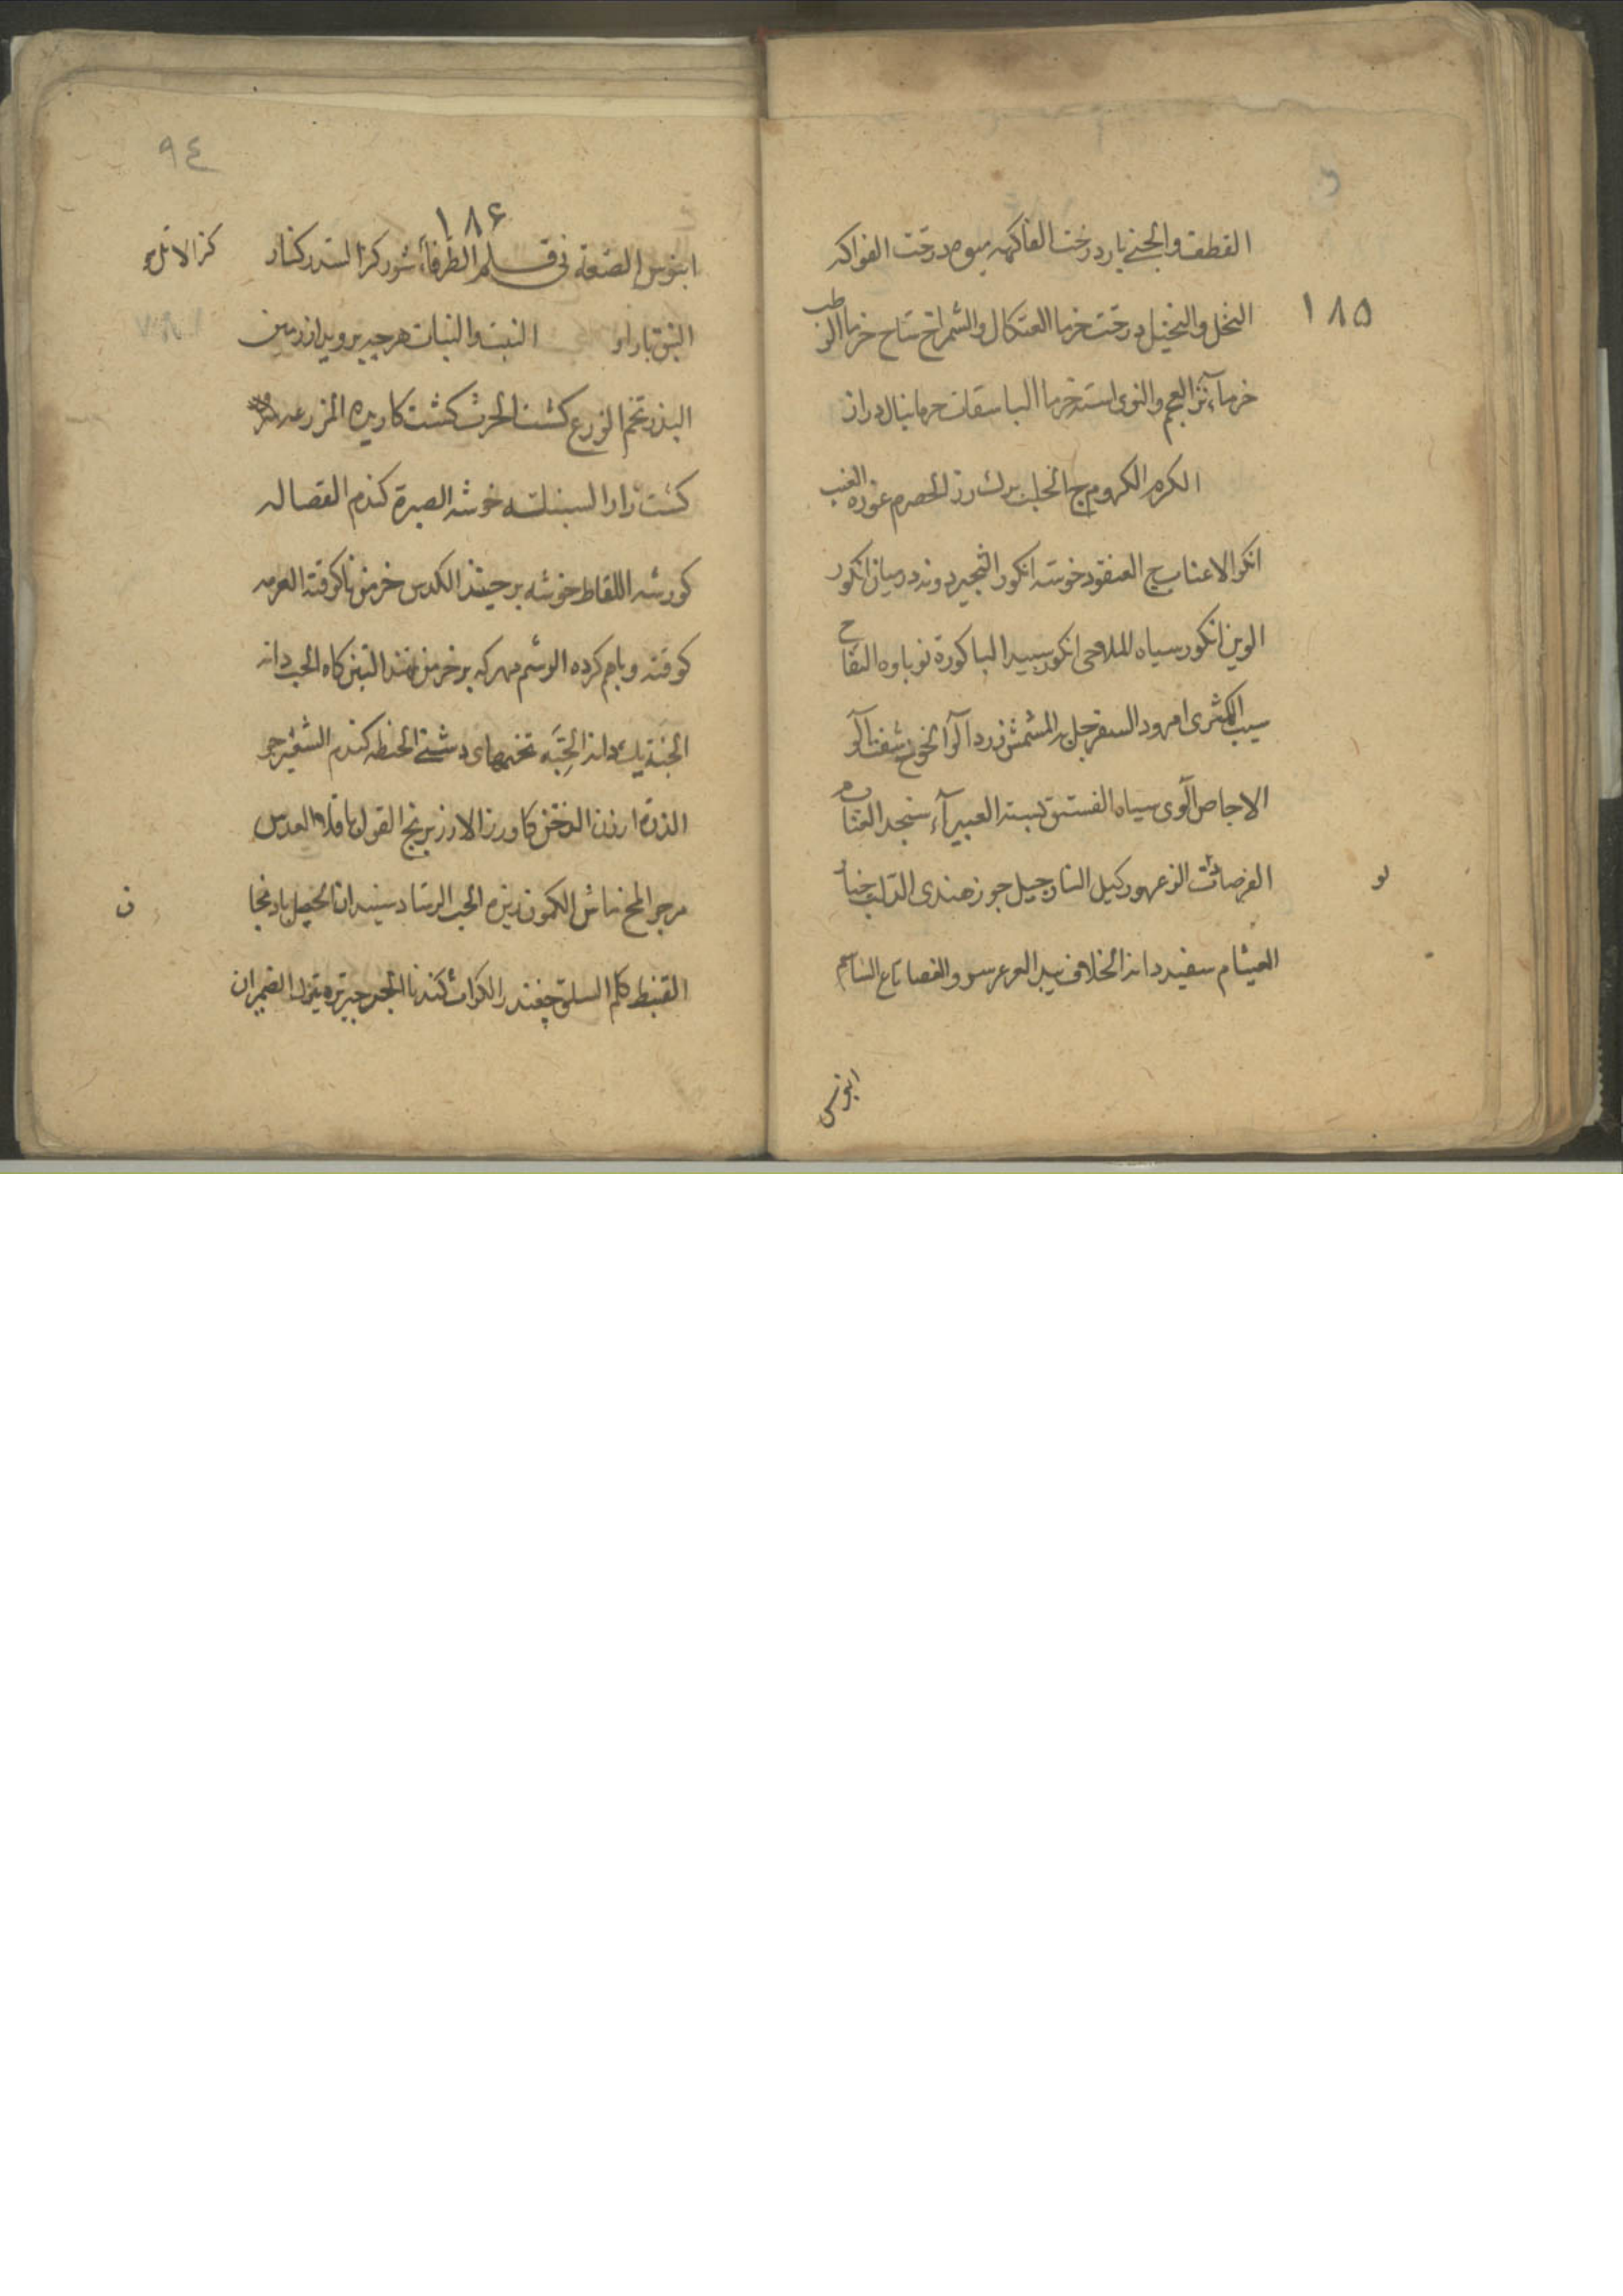 القطف والجنی بار درخت الفاکهه میوه درخت الفواکه
۱۸۵
النخل والنخیل درخت خرما العثکال والشمراخ شاخ خرما الرطب
خرماء تر العجم والنوی استه خرما الباسقات خرما بنان دراز
الکرم الکروم ج الجلب برک رز الحصرم غوره العنب
انکور الاعناب ج العنقود خوشه انکور الثجیر دوند درمیان انکور
الوین انکور سیاه الملاحی انکور سپید الباکورة نوباوه التفاح
سیب الکمثری امرود السفرجل به المشمش زردآلو الخوخ شفتالو
الاجاص آلوی سیاه الفستق پسته الغبیرآء سنجد العناب
الفرصاد توت الزعرور کیل النارجیل جوز هندی الدلب چنار
لو
العیثام سفیددار الخلاف بید العرعر سرو الغضا تاغ الساسم
ابنوس
۹٤
۱۸۶
ابنوس الضعة نی قلم الطرفاء شورکز السدر کنار
کز الاثل
النبق بار او النبت والنبات هرچه بروید از زمین
البذر تخم الزرع کشت الحرث کشت کاریده المزرعه
کشت زار السنبلة خوشه الصبرة کندم القصاله
کورشه اللقاط خوشه برچیند الکدس خرمن ناکوفته العرمه
کوفته وباهم کرده الوشم مهر که بر خرمن نهند التبن کاه الحب دانه
الحبة یک دانه الحبّه تخمهای دشتی الحنطه کندم الشعیر جو
الذرة ارزن الدخن کاورز الارز برنج الفول باقلا العدس
مرجو المج ماش الکمون زیره الحب الرشاد سپندان الحیصل بادنجا
ن
القنبیط کلم السلق چغندر الکراث کندنا الجرجیر تره تیزک الضیمران